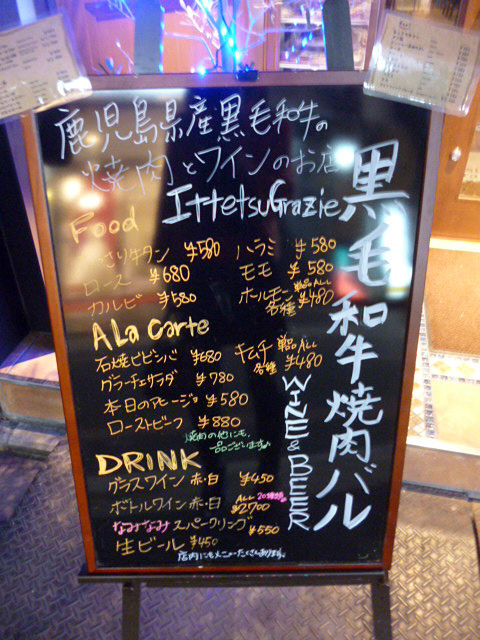 鹿児島県産黒毛和牛の
焼肉とワインのお店
IttetsuGrazie
黒毛和牛焼肉バル
WINE & BEER
Food
さり牛タン ¥580
ロース ¥680
カルビ ¥580
ハラミ ¥580
モモ ¥580
ホルモン各種 単品ALL ¥480
A La Carte
石焼ビビンバ ¥680
グラーチェサラダ ¥780
本日のアヒージョ ¥580
ローストビーフ ¥880
キムチ各種 単品ALL ¥480
焼肉の他にも、
一品ございます
DRINK
グラスワイン 赤・白 ¥450
ボトルワイン 赤・白 ALL ¥2700
なみなみスパークリング ¥550
生ビール ¥450
店内にもメニューたくさんあります。